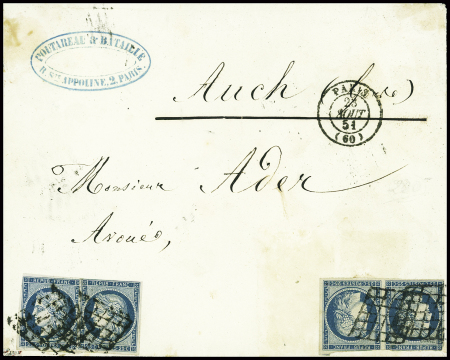 POUTAREAU & BATAILLE
R. Ste APPOLINE, 2, PARIS.
Auch (Gers)
PARIS
23
AOUT
51
(60)
Monsieur Ader
Avoué,
REPUB. FRANC.
REPUB. FRANC.
REPUB. FRANC.
REPUB. FRANC.